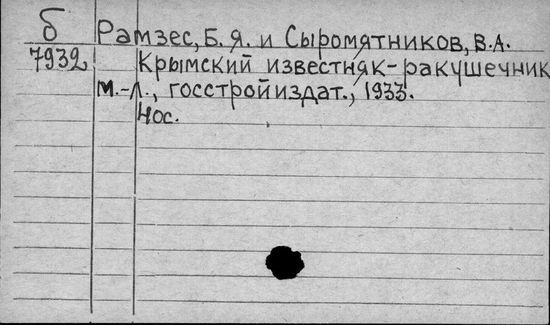 б Рамзес, Б. Я. и Сыромятников, В.А.
7932 Крымский известняк-ракушечник
М.-Л., госстройиздат., 1933.
40с.